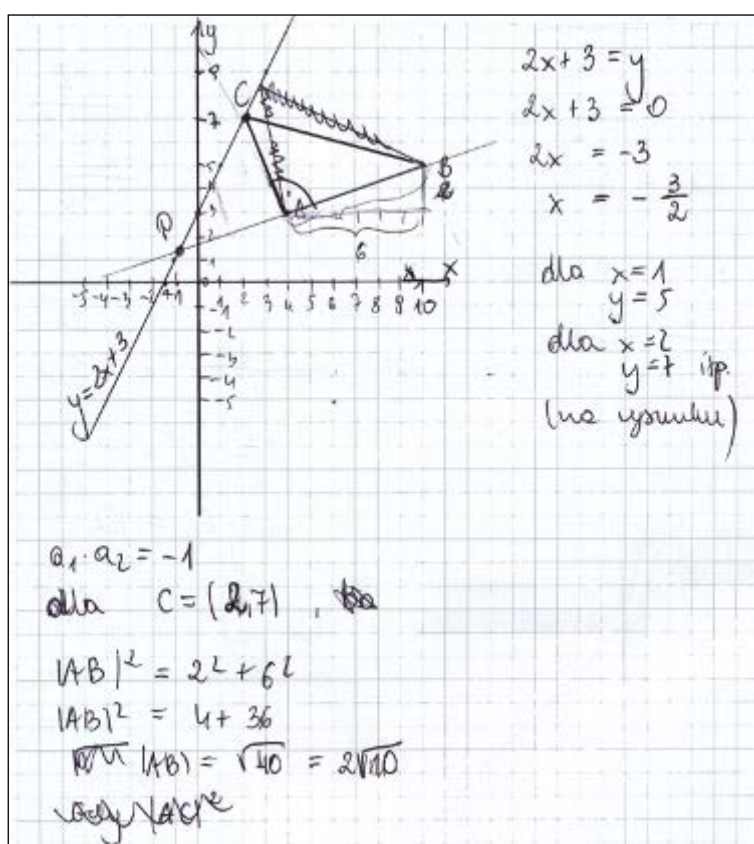 y
9
C
7
5
4
3
2
1
B
A
6
P
x
-5 -4 -3 -2 -1 0 1 2 3 4 5 6 7 8 9 10
-1
-2
-3
-4
-5
y=2x+3
2x + 3 = y
2x + 3 = 0
2x = -3
x = - 3/2
dla x=1
y=5
dla x=2
y=7 itp.
(na rysunku)
a₁·a₂ = -1
dla C = (2,7) ,
|AB|² = 2² + 6²
|AB|² = 4 + 36
|AB| = √40 = 2√10